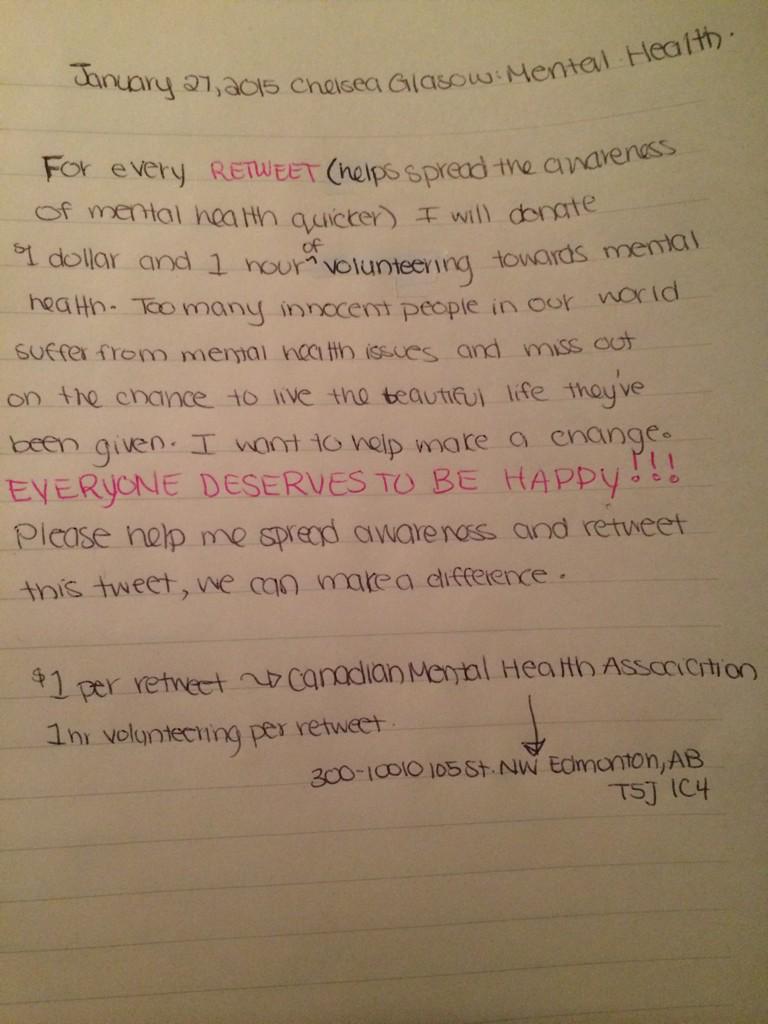 January 27, 2015 Chelsea Glasow: Mental Health.
For every RETWEET (helps spread the awareness
of mental health quicker) I will donate
$1 dollar and 1 hour ^of volunteering towards mental
health. Too many innocent people in our world
suffer from mental health issues and miss out
on the chance to live the beautiful life they've
been given. I want to help make a change.
EVERYONE DESERVES TO BE HAPPY!!!
Please help me spread awareness and retweet
this tweet, we can make a difference.
$1 per retweet → Canadian Mental Health Association
1hr volunteering per retweet.
300-10010 105 St. NW Edmonton, AB
T5J 1C4